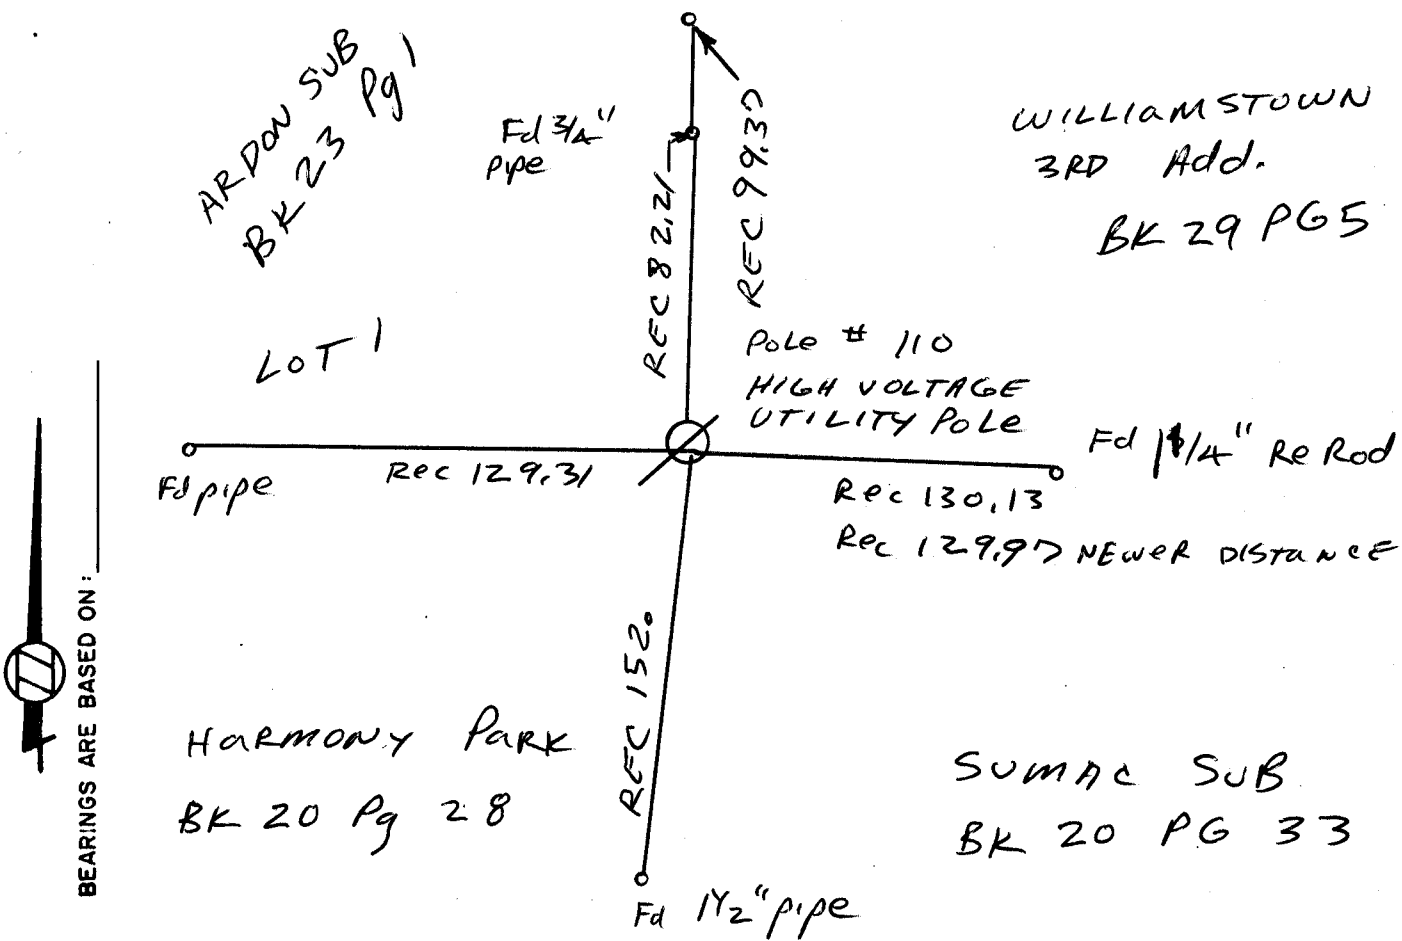 ARDON SUB
BK 23 Pg 1
LOT 1
Fd 3/4"
pipe
REC 82.21
REC 99.37
WILLIAMSTOWN
3RD Add.
BK 29 PG 5
Pole # 110
HIGH VOLTAGE
UTILITY Pole
Fd pipe
Rec 129.31
Fd 1 1/4" ReRod
Rec 130.13
Rec 129.97 NEWER DISTANCE
BEARINGS ARE BASED ON:
REC 152.
HARMONY PARK
BK 20 Pg 28
SUMAC SUB
BK 20 PG 33
Fd 1 1/2" pipe